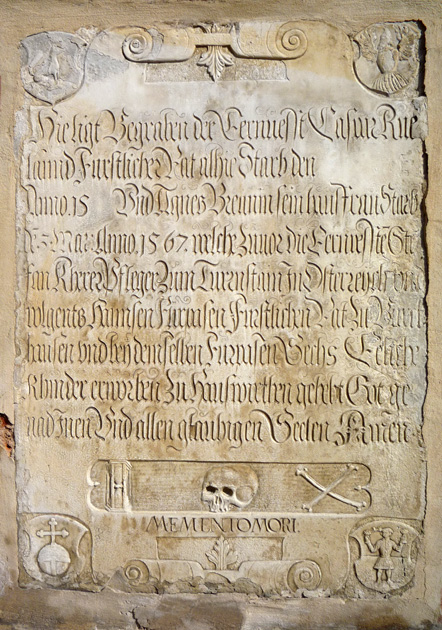 Hie ligt Begraben der Vernuesst Caspar Rue
land Furstlicher Rat alhie Starb den
Anno. 15 Und Agnes Bremin sein hausfrau Starb
Mar: Anno. 1567 welche Zuuor die Vernesste Ste
fan Pfleger Zum Turnstain In Osterreych
uolgents Hannsen Furstlichen Rat Zu
hausen vnd bey demselben Sechs Eeliche
Khinder erworben Zu Hauswierthen gehebt Got ge
nad Inen Und allen glaubigen Seelen Amen
MEMENTO MORI.